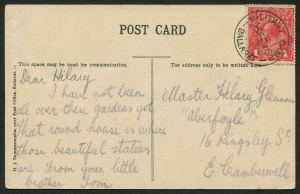 POST CARD
This space may be used for communication.
The address only to be written here.
Dear Hilary
I have not been
all over then gardens yet
that round house is where
those beautiful statues
are. From your little
brother Tom
Master Hilary Glennon
"Aberfoyle"
16 Kingsley St
E. Camberwell